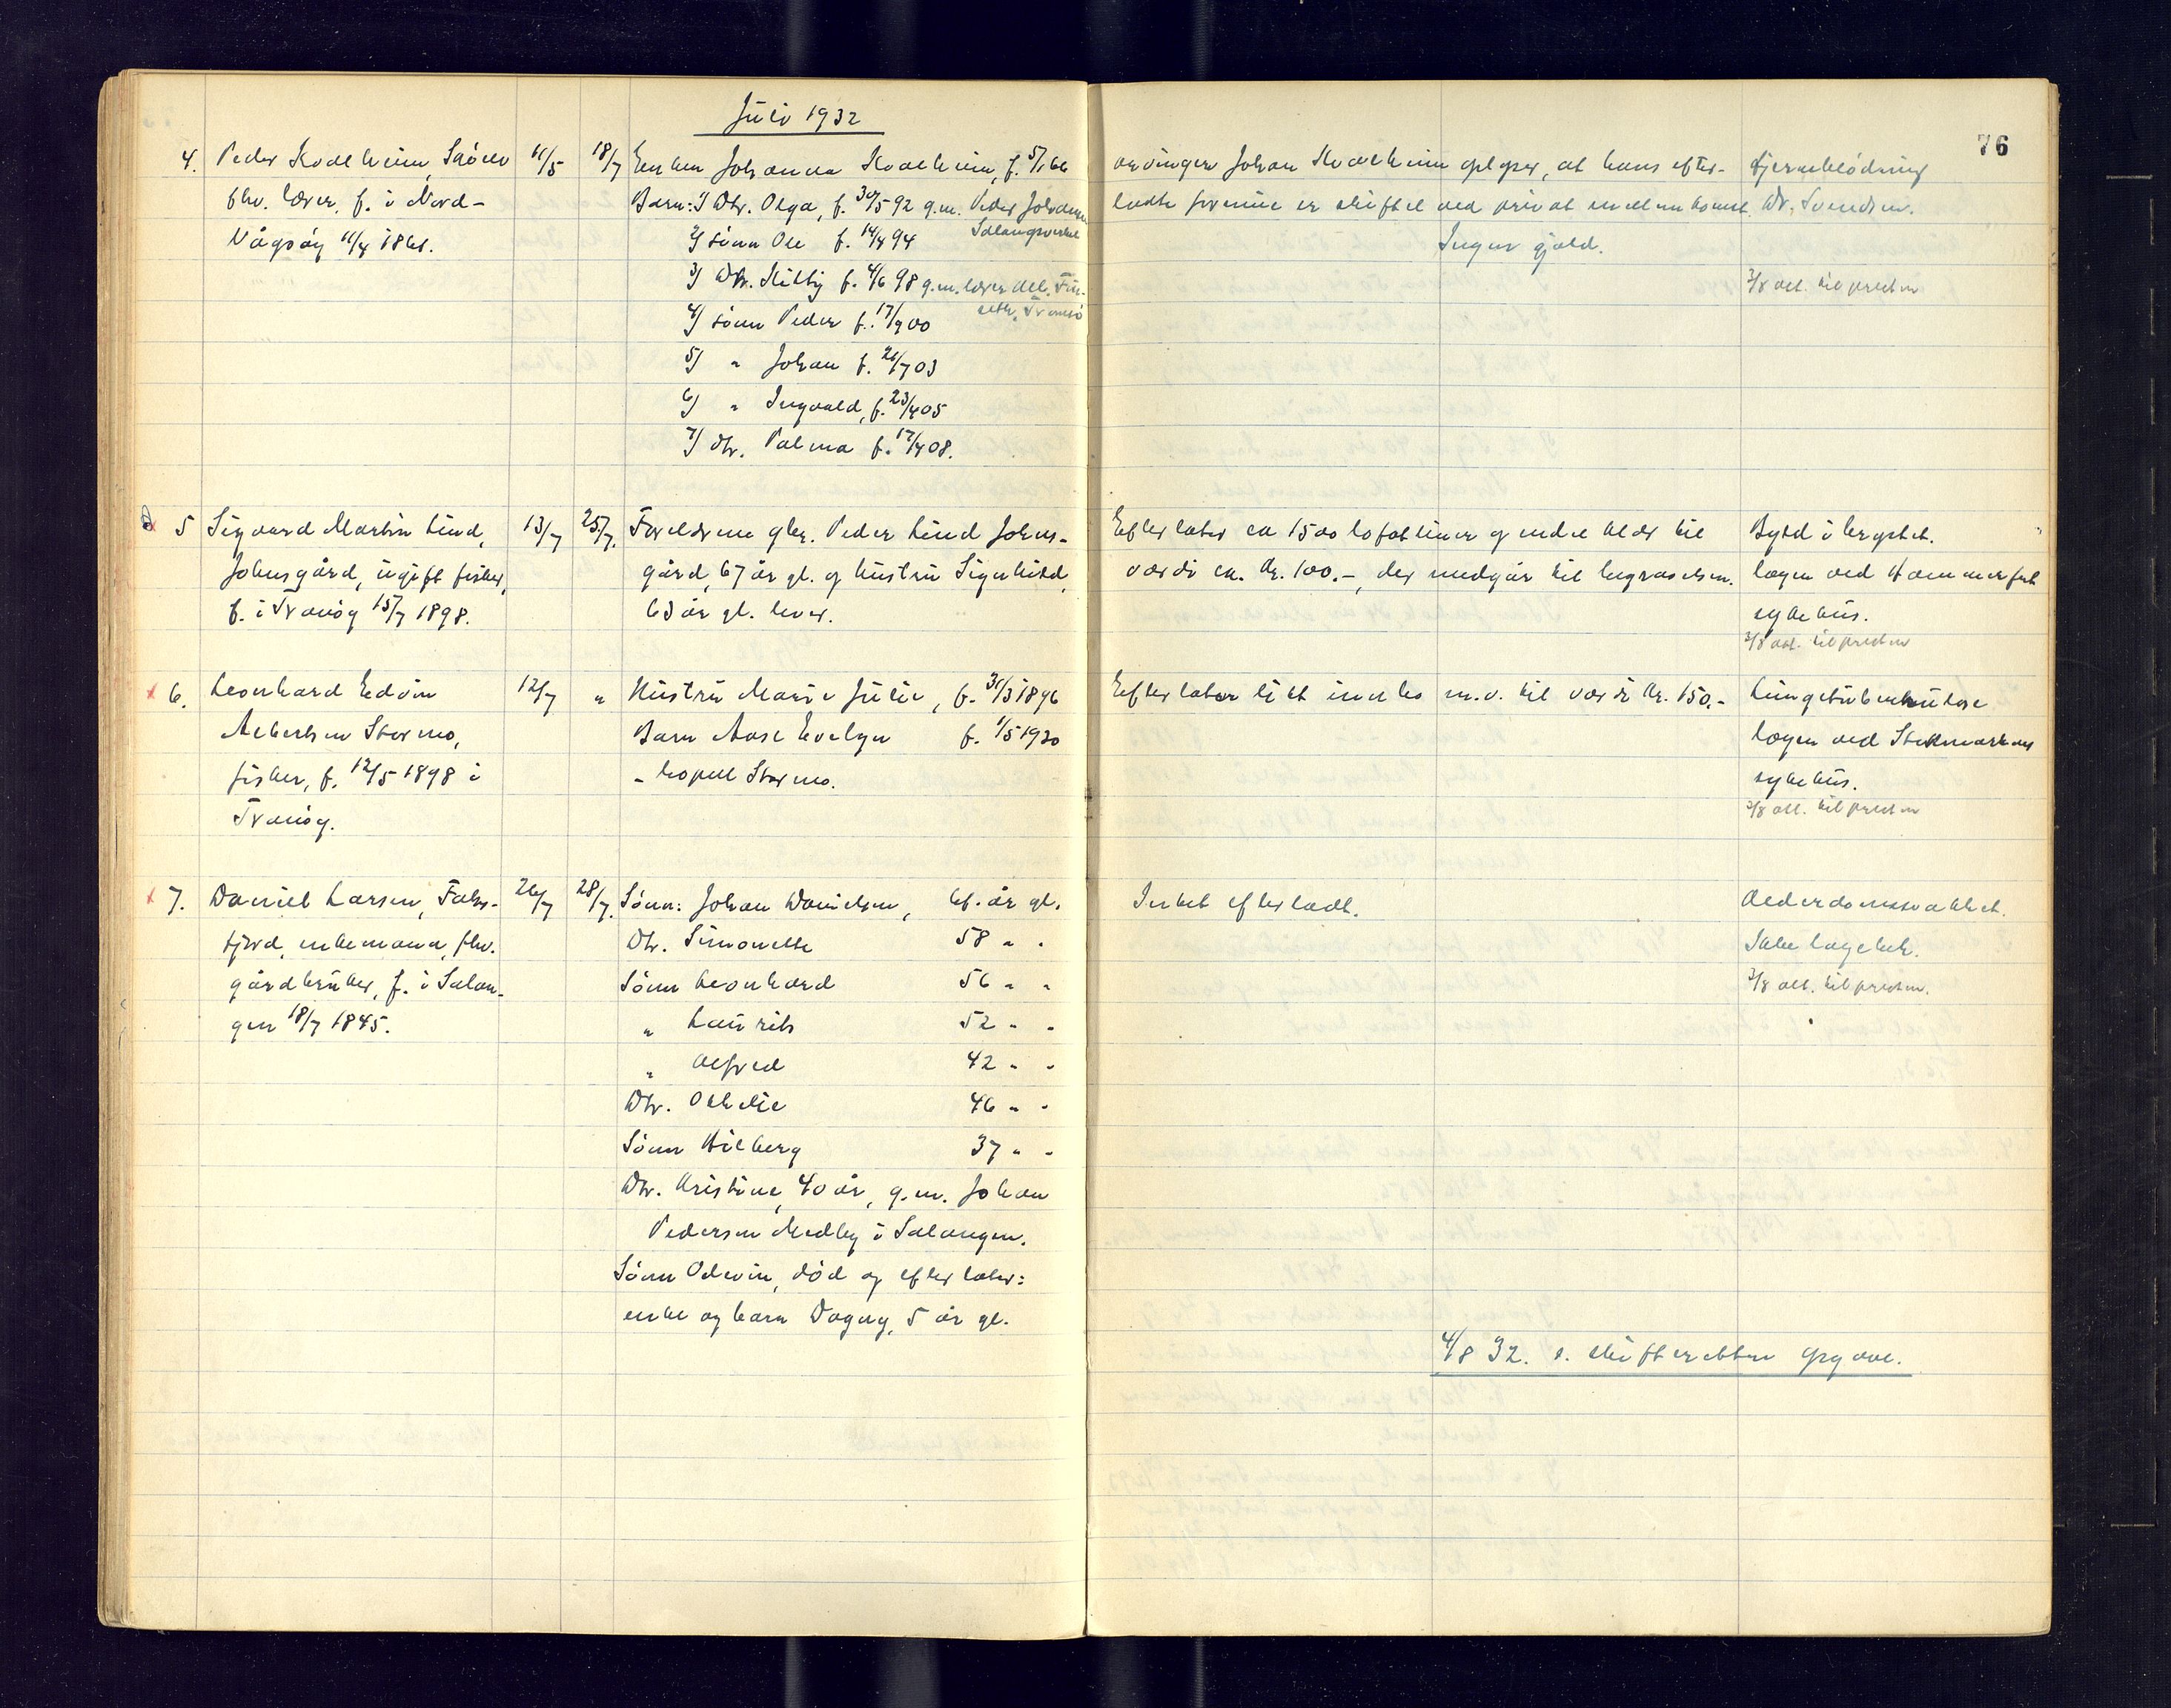 Juli 1932
76
4. Peder Kvalheim, Sjöen
fhv. lærer, f. i Nord-
Vågsöy 11/4 1861.
11/5
18/7
Enken Johanna Kvalheim, f. 5/1 66
Barn: 1) Dtr. Olga, f. 30/5 92 g.m. Peder Johansen
Salangsverket
2) sönn Ole f. 14/4 94
3) Dtr. Kitty f. 4/6 98 g.m. lærer Alb. Fin-
seth, Tromsö
4) sönn Peder f. 17/9 00
5) " Johan f. 21/7 03
6) " Ingvald, f. 23/4 05
7) dtr. Palma f. 17/4 08.
arvingen Johan Kvalheim oplyser, at hans efter-
ladte formue er skiftet ved privat mellemkomst.
Ingen gjeld.
Hjerneblödning
Dr. Svendsen.
3/8 att. til presten
5 Sigvard Martin Lind,
Johnsgård, ugift fisker,
f. i Tranöy 15/7 1898.
13/7
25/7.
Foreldrene gbr. Peder Lind Johns-
gård, 67 år gl. og hustru Signhild,
63 år gl. lever.
Efterlater ca 1500 lofotliner og endel klær til
værdi ca. kr. 100.-, der medgår til begravelsen.
Byld i brystet.
lægen ved Hammerfest
sykehus.
3/8 att. til presten
6. Leonhard Edvin
Albertsen Stormo,
fisker, f. 12/5 1898 i
Tranöy.
12/7
"
Hustru Marie Julie, f. 31/3 1896
Barn Aase Evelyn f. 1/5 1930
- bopel Stormo.
Efterlater litt innbo m.v. til værdi kr. 150.-
Lungetuberkulose
lægen ved Stokmarknes
sykehus.
3/8 att. til presten
7. Daniel Larsen, Faks-
fjord, enkemann, fhv.
gårdbruker, f. i Salan-
gen 18/7 1845.
26/7
28/7.
Sönn: Johan Danielsen, 61. år gl.
Dtr. Simonette 58 " "
Sönn Leonhard 56 " "
" Laurits 52 " "
" Alfred 42 " "
Dtr. Othelie 46 " "
Sönn Hilberg 37 " "
Dtr. Kristine, 40 år, g.m. Johan
Pedersen Medby i Salangen.
Sönn Odevin, död og efterlater:
enke og barn Dagny, 5 år gl.
Intet efterladt.
Alderdomssvakhet.
Ikke lægebeh.
3/8 att. til presten.
4/8 32. s. skifteretten opgave.